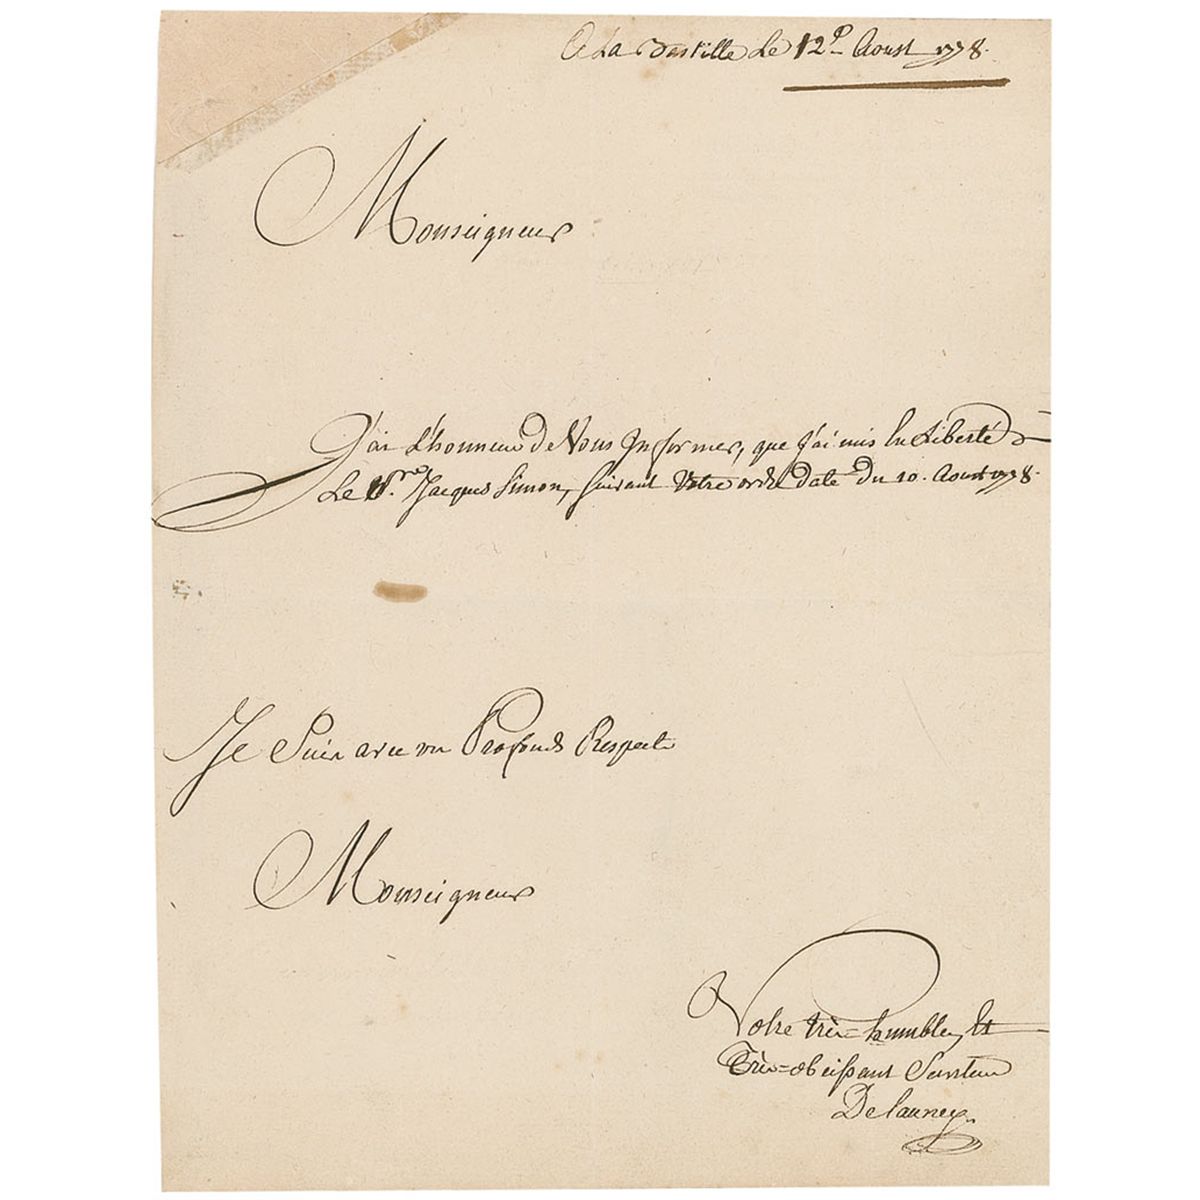 A La Bastille Le 12e Aoust 1778.
Monseigneur
J'ai L'honneur de Vous Informer, que J'ai mis En Liberté
Le Jacques Simon, suivant Votre ordre daté du 10. Aoust 1778.
Je Suis avec un Profond Respect
Monseigneur
Votre très=humble, Et
Très=obeissant Serviteur
Delauney